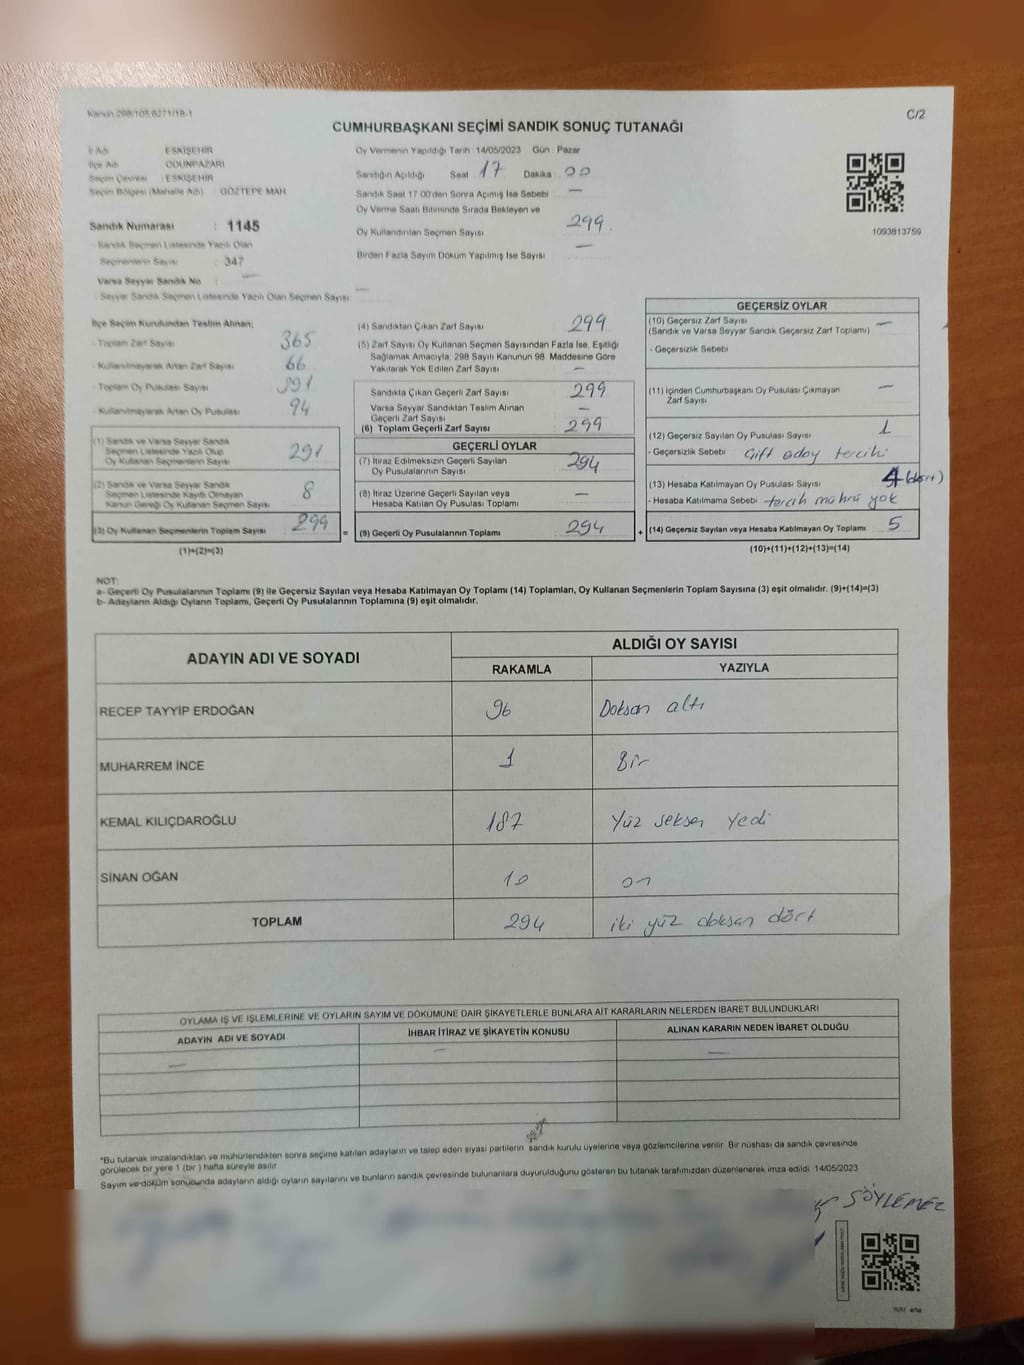 Kanun 298/105,6271/18-1
C/2
CUMHURBAŞKANI SEÇİMİ SANDIK SONUÇ TUTANAĞI
İl Adı ESKİŞEHİR
İlçe Adı ODUNPAZARI
Seçim Çevresi : ESKİŞEHİR
Seçim Bölgesi (Mahalle Adı) GÖZTEPE MAH.
Sandık Numarası : 1145
- Sandık Seçmen Listesinde Yazılı Olan
Seçmenlerin Sayısı : 347
Varsa Seyyar Sandık No : —
- Seyyar Sandık Seçmen Listesinde Yazılı Olan Seçmen Sayısı —
Oy Vermenin Yapıldığı Tarih : 14/05/2023 Gün : Pazar
Sandığın Açıldığı Saat 17 Dakika 00
Sandık Saat 17.00'den Sonra Açımış İse Sebebi —
Oy Verme Saati Bitiminde Sırada Bekleyen ve
Oy Kullandırılan Seçmen Sayısı 299
Birden Fazla Sayım Döküm Yapılmış İse Sayısı —
1093813759
İlçe Seçim Kurulundan Teslim Alınan;
- Toplam Zarf Sayısı 365
- Kullanılmayarak Artan Zarf Sayısı 66
- Toplam Oy Pusulası Sayısı 391
- Kullanılmayarak Artan Oy Pusulası 94
(1) Sandık ve Varsa Seyyar Sandık
Seçmen Listesinde Yazılı Olup
Oy Kullanan Seçmenlerin Sayısı 291
(2) Sandık ve Varsa Seyyar Sandık
Seçmen Listesinde Kayıtlı Olmayan
Kanun Gereği Oy Kullanan Seçmen Sayısı 8
(3) Oy Kullanan Seçmenlerin Toplam Sayısı 299 =
(1)+(2)=(3)
(4) Sandıktan Çıkan Zarf Sayısı 299
(5) Zarf Sayısı Oy Kullanan Seçmen Sayısından Fazla İse, Eşitliği
Sağlamak Amacıyla, 298 Sayılı Kanunun 98. Maddesine Göre
Yakılarak Yok Edilen Zarf Sayısı —
Sandıkta Çıkan Geçerli Zarf Sayısı 299
Varsa Seyyar Sandıktan Teslim Alınan
Geçerli Zarf Sayısı —
(6) Toplam Geçerli Zarf Sayısı 299
GEÇERLİ OYLAR
(7) İtiraz Edilmeksizin Geçerli Sayılan
Oy Pusulalarının Sayısı 294
(8) İtiraz Üzerine Geçerli Sayılan veya
Hesaba Katılan Oy Pusulası Toplamı —
(9) Geçerli Oy Pusulalarının Toplamı 294 +
GEÇERSİZ OYLAR
(10) Geçersiz Zarf Sayısı —
(Sandık ve Varsa Seyyar Sandık Geçersiz Zarf Toplamı)
- Geçersizlik Sebebi
(11) İçinden Cumhurbaşkanı Oy Pusulası Çıkmayan
Zarf Sayısı —
(12) Geçersiz Sayılan Oy Pusulası Sayısı 1
- Geçersizlik Sebebi Çift aday tercihi
(13) Hesaba Katılmayan Oy Pusulası Sayısı 4 (dört)
- Hesaba Katılmama Sebebi tercih mührü yok
(14) Geçersiz Sayılan veya Hesaba Katılmayan Oy Toplamı 5
(10)+(11)+(12)+(13)=(14)
NOT:
a- Geçerli Oy Pusulalarının Toplamı (9) ile Geçersiz Sayılan veya Hesaba Katılmayan Oy Toplamı (14) Toplamları, Oy Kullanan Seçmenlerin Toplam Sayısına (3) eşit olmalıdır. (9)+(14)=(3)
b- Adayların Aldığı Oyların Toplamı, Geçerli Oy Pusulalarının Toplamına (9) eşit olmalıdır.
ADAYIN ADI VE SOYADI ALDIĞI OY SAYISI
RAKAMLA YAZIYLA
RECEP TAYYİP ERDOĞAN 96 Doksan altı
MUHARREM İNCE 1 Bir
KEMAL KILIÇDAROĞLU 187 Yüz seksen yedi
SİNAN OĞAN 10 on
TOPLAM 294 iki yüz doksan dört
OYLAMA İŞ VE İŞLEMLERİNE VE OYLARIN SAYIM VE DÖKÜMÜNE DAİR ŞİKAYETLERLE BUNLARA AİT KARARLARIN NELERDEN İBARET BULUNDUKLARI
ADAYIN ADI VE SOYADI İHBAR İTİRAZ VE ŞİKAYETİN KONUSU ALINAN KARARIN NEDEN İBARET OLDUĞU
— — —
*Bu tutanak imzalandıktan ve mühürlendikten sonra seçime katılan adayların ve talep eden siyasi partilerin sandık kurulu üyelerine veya gözlemcilerine verilir. Bir nüshası da sandık çevresinde
görülecek bir yere 1 (bir) hafta süreyle asılır.
Sayım ve döküm sonucunda adayların aldığı oyların sayılarını ve bunların sandık çevresinde bulunanlara duyurulduğunu gösteren bu tutanak tarafımızdan düzenlenerek imza edildi. 14/05/2023
SÖYLEMEZ